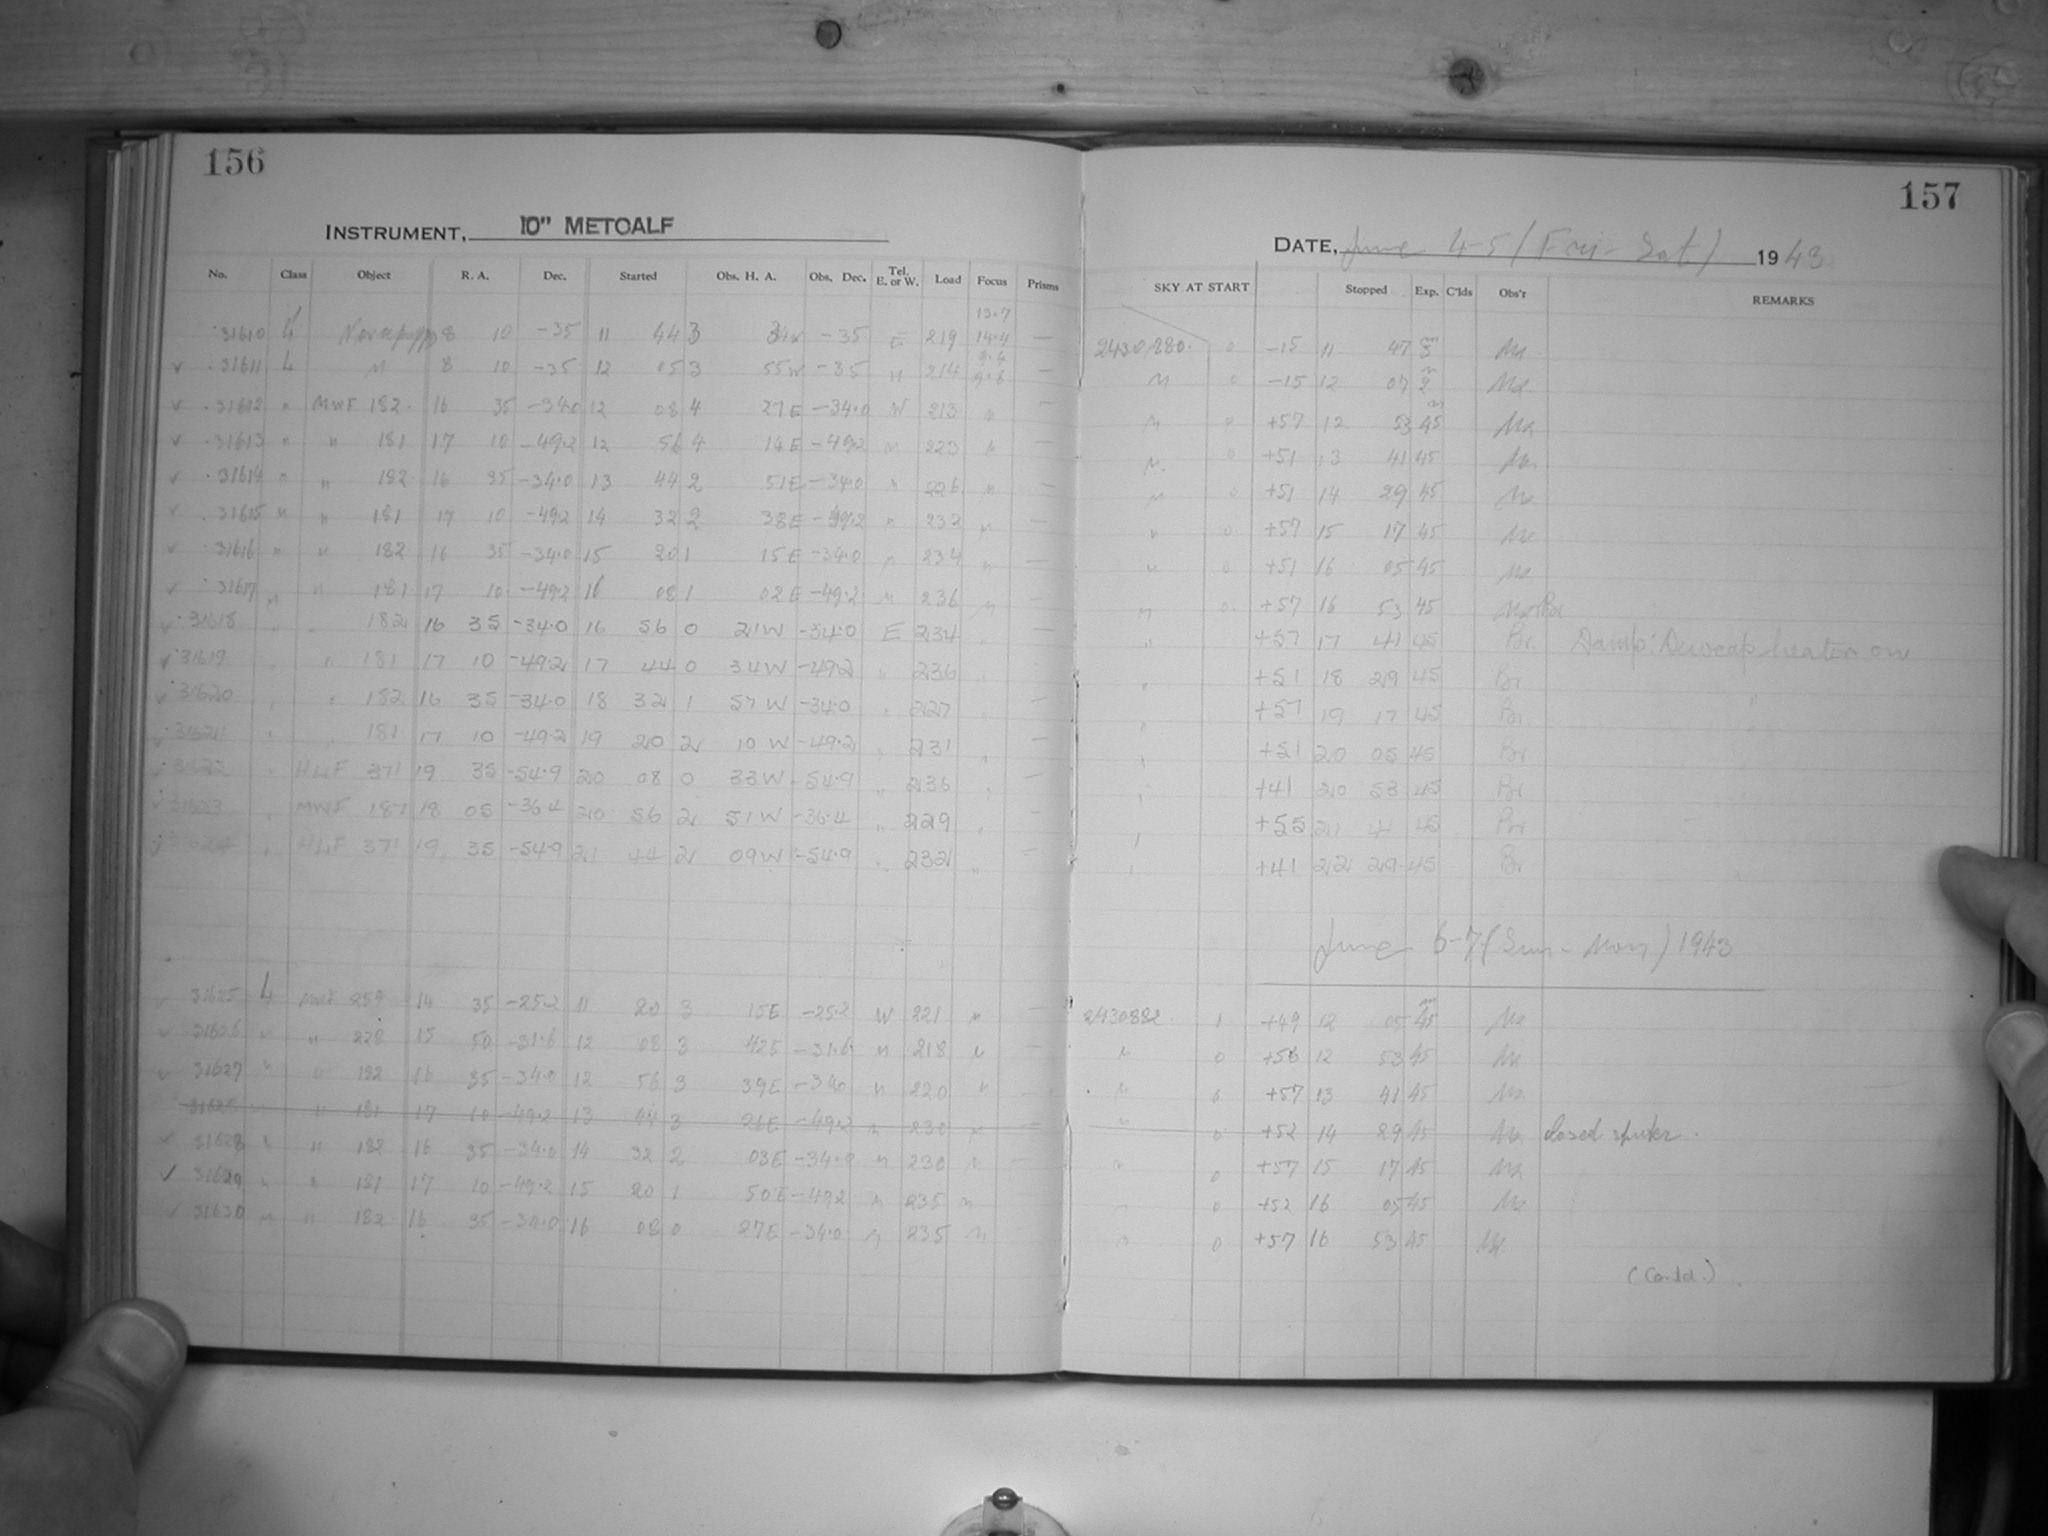 156
INSTRUMENT, 10" METCALF
No. Class Object R. A. Dec. Started Obs. H. A. Obs. Dec. Tel. E. or W. Load Focus Prisms
13.7
31610 L 8 10 -35 11 44 3 -35 E 219 14.4 —
9.4
31611 L " 8 10 -35 12 05 3 55W -35 " 214 9.6 —
31612 " MWF 182 16 35 -34.0 12 08 4 27E -34.0 W 213 " —
31613 " " 181 17 10 -49.2 12 56 4 14E -49.2 " 223 " —
31614 " " 182 16 35 -34.0 13 44 2 51E -34.0 " 226 " —
31615 " " 181 17 10 -49.2 14 32 2 38E -49.2 " 232 " —
31616 " " 182 16 35 -34.0 15 20 1 15E -34.0 " 234 " —
31617 " " 181 17 10 -49.2 16 08 1 02E -49.2 " 236 " —
31618 " " 182 16 35 -34.0 16 56 0 21W -34.0 E 234 "
31619 " " 181 17 10 -49.2 17 44 0 34W -49.2 " 236 "
31620 " " 182 16 35 -34.0 18 32 1 57W -34.0 " 227 " —
31621 " " 181 17 10 -49.2 19 20 2 10W -49.2 " 231 " —
31622 " 371 19 35 -54.9 20 08 0 33W -54.9 " 236 " —
31623 " MWF 187 18 05 -36.4 20 56 2 51W -36.4 " 229 " —
31624 " 371 19 35 -54.9 21 44 2 09W -54.9 " 232 " —
31625 L MWF 259 14 35 -25.2 11 20 3 15E -25.2 W 221 " —
31626 " " 228 15 50 -31.6 12 08 3 42E -31.6 " 218 " —
31627 " " 182 16 35 -34.0 12 56 3 39E -34.0 " 220 " —
31628 " " 181 17 10 -49.2 13 44 3 26E -49.2 " 230 " —
31628 " " 182 16 35 -34.0 14 32 2 03E -34.0 " 230 " —
31629 " " 181 17 10 -49.2 15 20 1 50E -49.2 " 235 "
31630 " " 182 16 35 -34.0 16 08 0 27E -34.0 " 235 "
157
DATE, June 4-5 (Fri-Sat) 1943
SKY AT START Stopped Exp. C'lds Obs'r REMARKS
2430880. 0 -15 11 47 3m Ma
" 0 -15 12 07 2m Ma
" 0 +57 12 53 45m Ma
" 0 +51 13 41 45 Ma
" 0 +51 14 29 45 Ma
" 0 +57 15 17 45 Ma
" 0 +51 16 05 45 Ma
" 0 +57 16 53 45
" +57 17 41 45 Br. Damp: Dewcap heater on
" +51 18 29 45 Br
" +57 19 17 45 Br "
" +51 20 05 45 Br
" +41 20 53 45 Br
" +55 21 41 45 Br
" +41 22 29 45 Br
June 6-7 (Sun-Mon) 1943
2430882 1 +49 12 05 45m Ma
" 0 +56 12 53 45 Ma
" 0 +57 13 41 45 Ma
" 0 +52 14 29 45 Ma closed shutter.
" 0 +57 15 17 45 Ma
" 0 +52 16 05 45 Ma
" 0 +57 16 53 45 Ma
(Contd.)